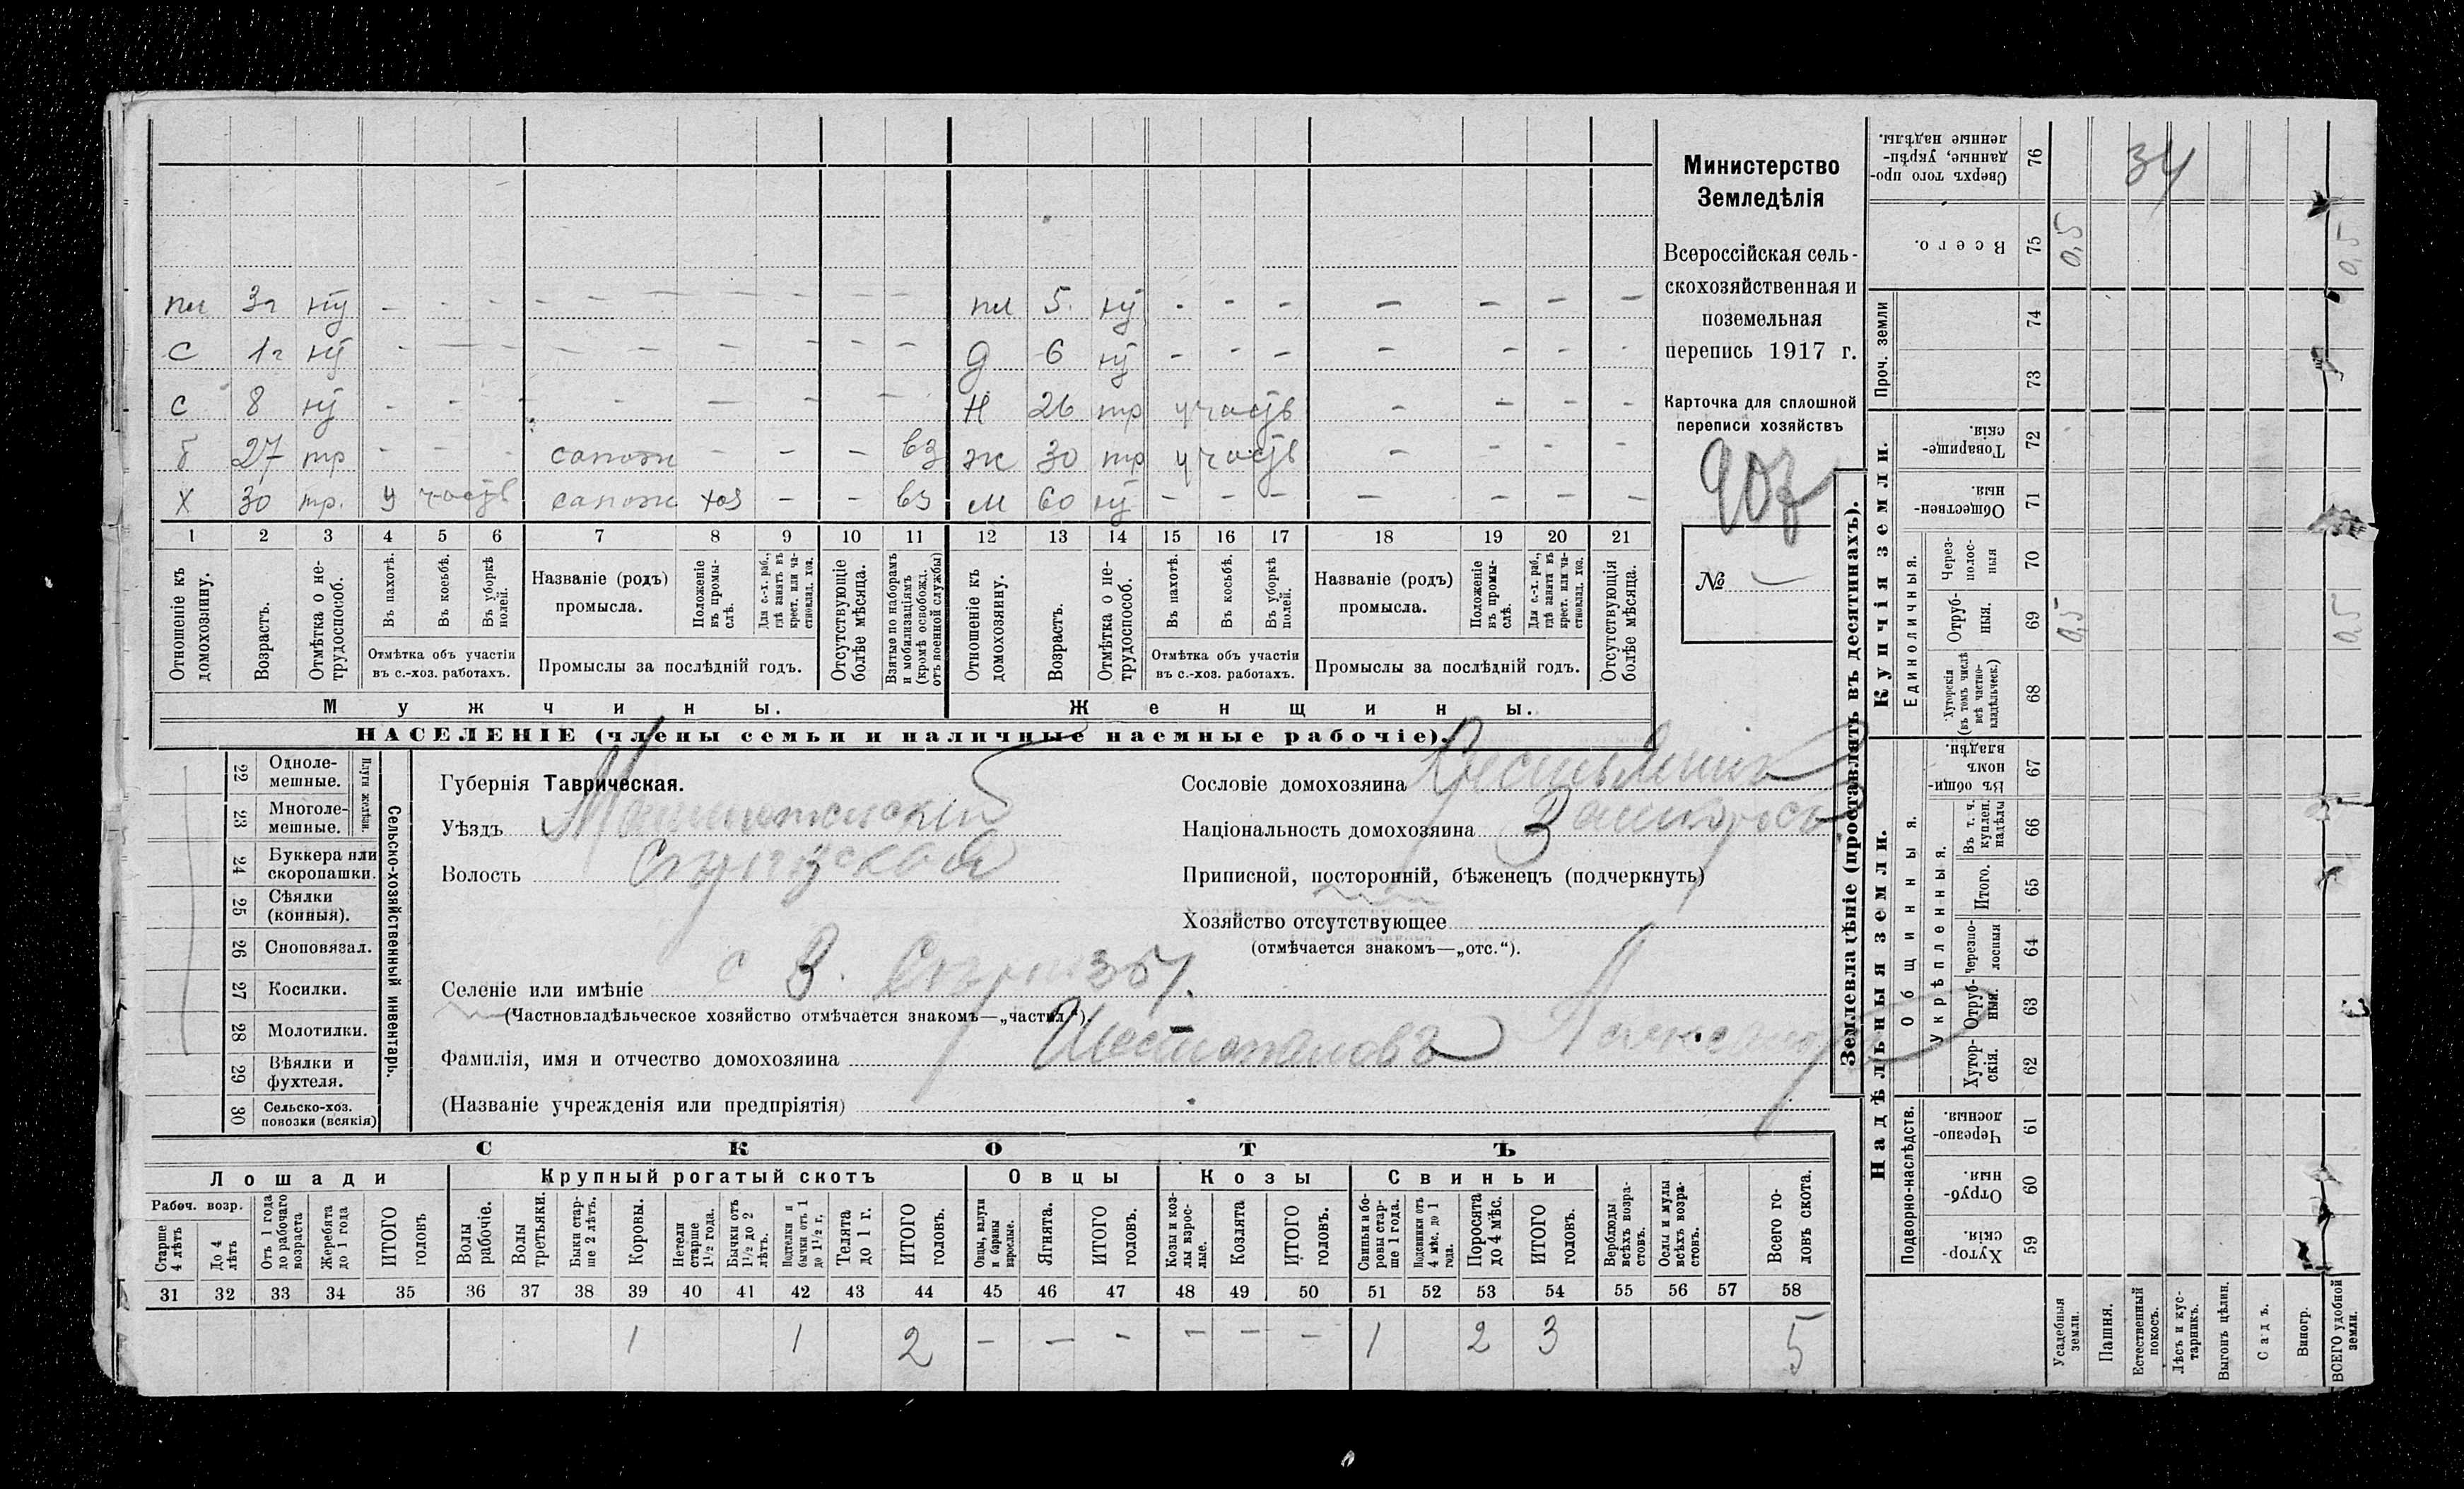 пл 3г ну - - - - - - - - пл 5. ну - - - - - - -
с 1г ну - - - - - - - - д 6 ну - - - - - - -
с 8 ну - - - - - - - - н 26 тр участв - - - -
б 27 тр - - - сапожн - - - вз ж 30 тр участв - - - -
х 30 тр. участв сапожн хоз - - вз м 60 ну - - - - - - -
1 2 3 4 5 6 7 8 9 10 11 12 13 14 15 16 17 18 19 20 21
Отношеніе къ домохозяину.
Возрастъ.
Отмѣтка о не-трудоспособ.
Въ пахотѣ.
Въ косьбѣ.
Въ уборкѣ полей.
Отмѣтка объ участіи
въ с.-хоз. работахъ.
Названіе (родъ)
промысла.
Положеніе въ промы-слѣ.
Для с.-х. раб., гдѣ занятъ въ крест. или ча-стновлад. хоз.
Промыслы за послѣдній годъ.
Отсутствующіе болѣе мѣсяца.
Взятые по наборамъ и мобилизаціямъ (кромѣ освобожд. отъ военной службы)
Отношеніе къ домохозяину.
Возрастъ.
Отмѣтка о не-трудоспособ.
Въ пахотѣ.
Въ косьбѣ.
Въ уборкѣ полей.
Отмѣтка объ участіи
въ с.-хоз. работахъ.
Названіе (родъ)
промысла.
Положеніе въ промы-слѣ.
Для с.-х. раб., гдѣ занята въ крест. или ча-стновлад. хоз.
Промыслы за послѣдній годъ.
Отсутствующія болѣе мѣсяца.
Мужчины. Женщины.
НАСЕЛЕНІЕ (члены семьи и наличные наемные рабочіе).
Министерство
Земледѣлія
Всероссійская сель-
скохозяйственная и
поземельная
перепись 1917 г.
Карточка для сплошной
переписи хозяйствъ
№
22 Одноле-
мешные.
23 Многоле-
мешные.
Плуги желѣзн.
24 Буккера или
скоропашки.
25 Сѣялки
(конныя).
26 Сноповязал.
27 Косилки.
28 Молотилки.
29 Вѣялки и
фухтеля.
30 Сельско-хоз.
повозки (всякія)
Сельско-хозяйственный инвентарь.
Губернія Таврическая.
Уѣздъ
Волость
Селеніе или имѣніе с В.
(Частновладѣльческое хозяйство отмѣчается знакомъ—„частвл“).
Фамилія, имя и отчество домохозяина Шестопаловъ
(Названіе учрежденія или предпріятія)
Сословіе домохозяина
Національность домохозяина
Приписной, посторонній, бѣженецъ (подчеркнуть)
Хозяйство отсутствующее
(отмѣчается знакомъ—„отс.“).
СКОТЪ
Лошади Крупный рогатый скотъ Овцы Козы Свиньи
Рабоч. возр.
Старше 4 лѣтъ
До 4 лѣтъ
Отъ 1 года до рабочаго возраста
Жеребята до 1 года
ИТОГО головъ
Волы рабочіе.
Волы третьяки.
Быки стар-ше 2 лѣтъ.
Коровы.
Нетели старше 1 1/2 года.
Бычки отъ 1 1/2 до 2 лѣтъ.
Подтелки и бычки отъ 1 до 1 1/2 г.
Телята до 1 г.
ИТОГО головъ.
Овцы, валухи и бараны взрослые.
Ягнята.
ИТОГО головъ.
Козы и коз-лы взрос-лые.
Козлята
ИТОГО головъ.
Свиньи и бо-ровы стар-ше 1 года.
Подсвинки отъ 4 мѣс. до 1 года.
Поросята до 4 мѣс.
ИТОГО головъ.
Верблюды всѣхъ возра-стовъ.
Ослы и мулы всѣхъ возра-стовъ.
Всего го-ловъ скота.
31 32 33 34 35 36 37 38 39 40 41 42 43 44 45 46 47 48 49 50 51 52 53 54 55 56 57 58
1 1 2 - - - - - - 1 2 3 5
Землевладѣніе (проставлять въ десятинахъ).
Надѣльныя земли.
Купчія земли.
Проч. земли
Подворно-наслѣдств.
Общинныя.
Укрѣпленныя.
Единоличныя.
Хутор-скія. 59
Отруб-ныя. 60
Черезпо-лосныя 61
Хутор-скія. 62
Отруб-ныя. 63
Черезпо-лосныя 64
Итого. 65
Въ т. ч. куплен. надѣлы 66
Въ общи-номъ владѣн. 67
Хуторскія (въ томъ числѣ всѣ частно-владѣльческ.) 68
Отруб-ныя. 69 0,5 0,5
Через-полос-ныя 70
Обществен-ныя. 71
Товарище-скія. 72
73
74
Всего. 75 0,5 0,5
Сверхъ того про-данные, укрѣп-ленные надѣлы. 76 34
Усадебныя земли.
Пашня.
Естественный покосъ.
Лѣсъ и кус-тарникъ.
Выгонъ цѣлин.
Садъ.
Виногр.
ВСЕГО удобной земли.